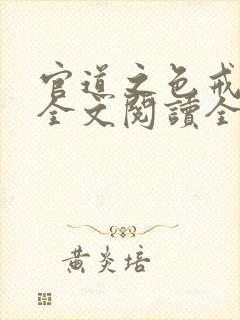 官道之色戒
全文閱讀全
黄炎培